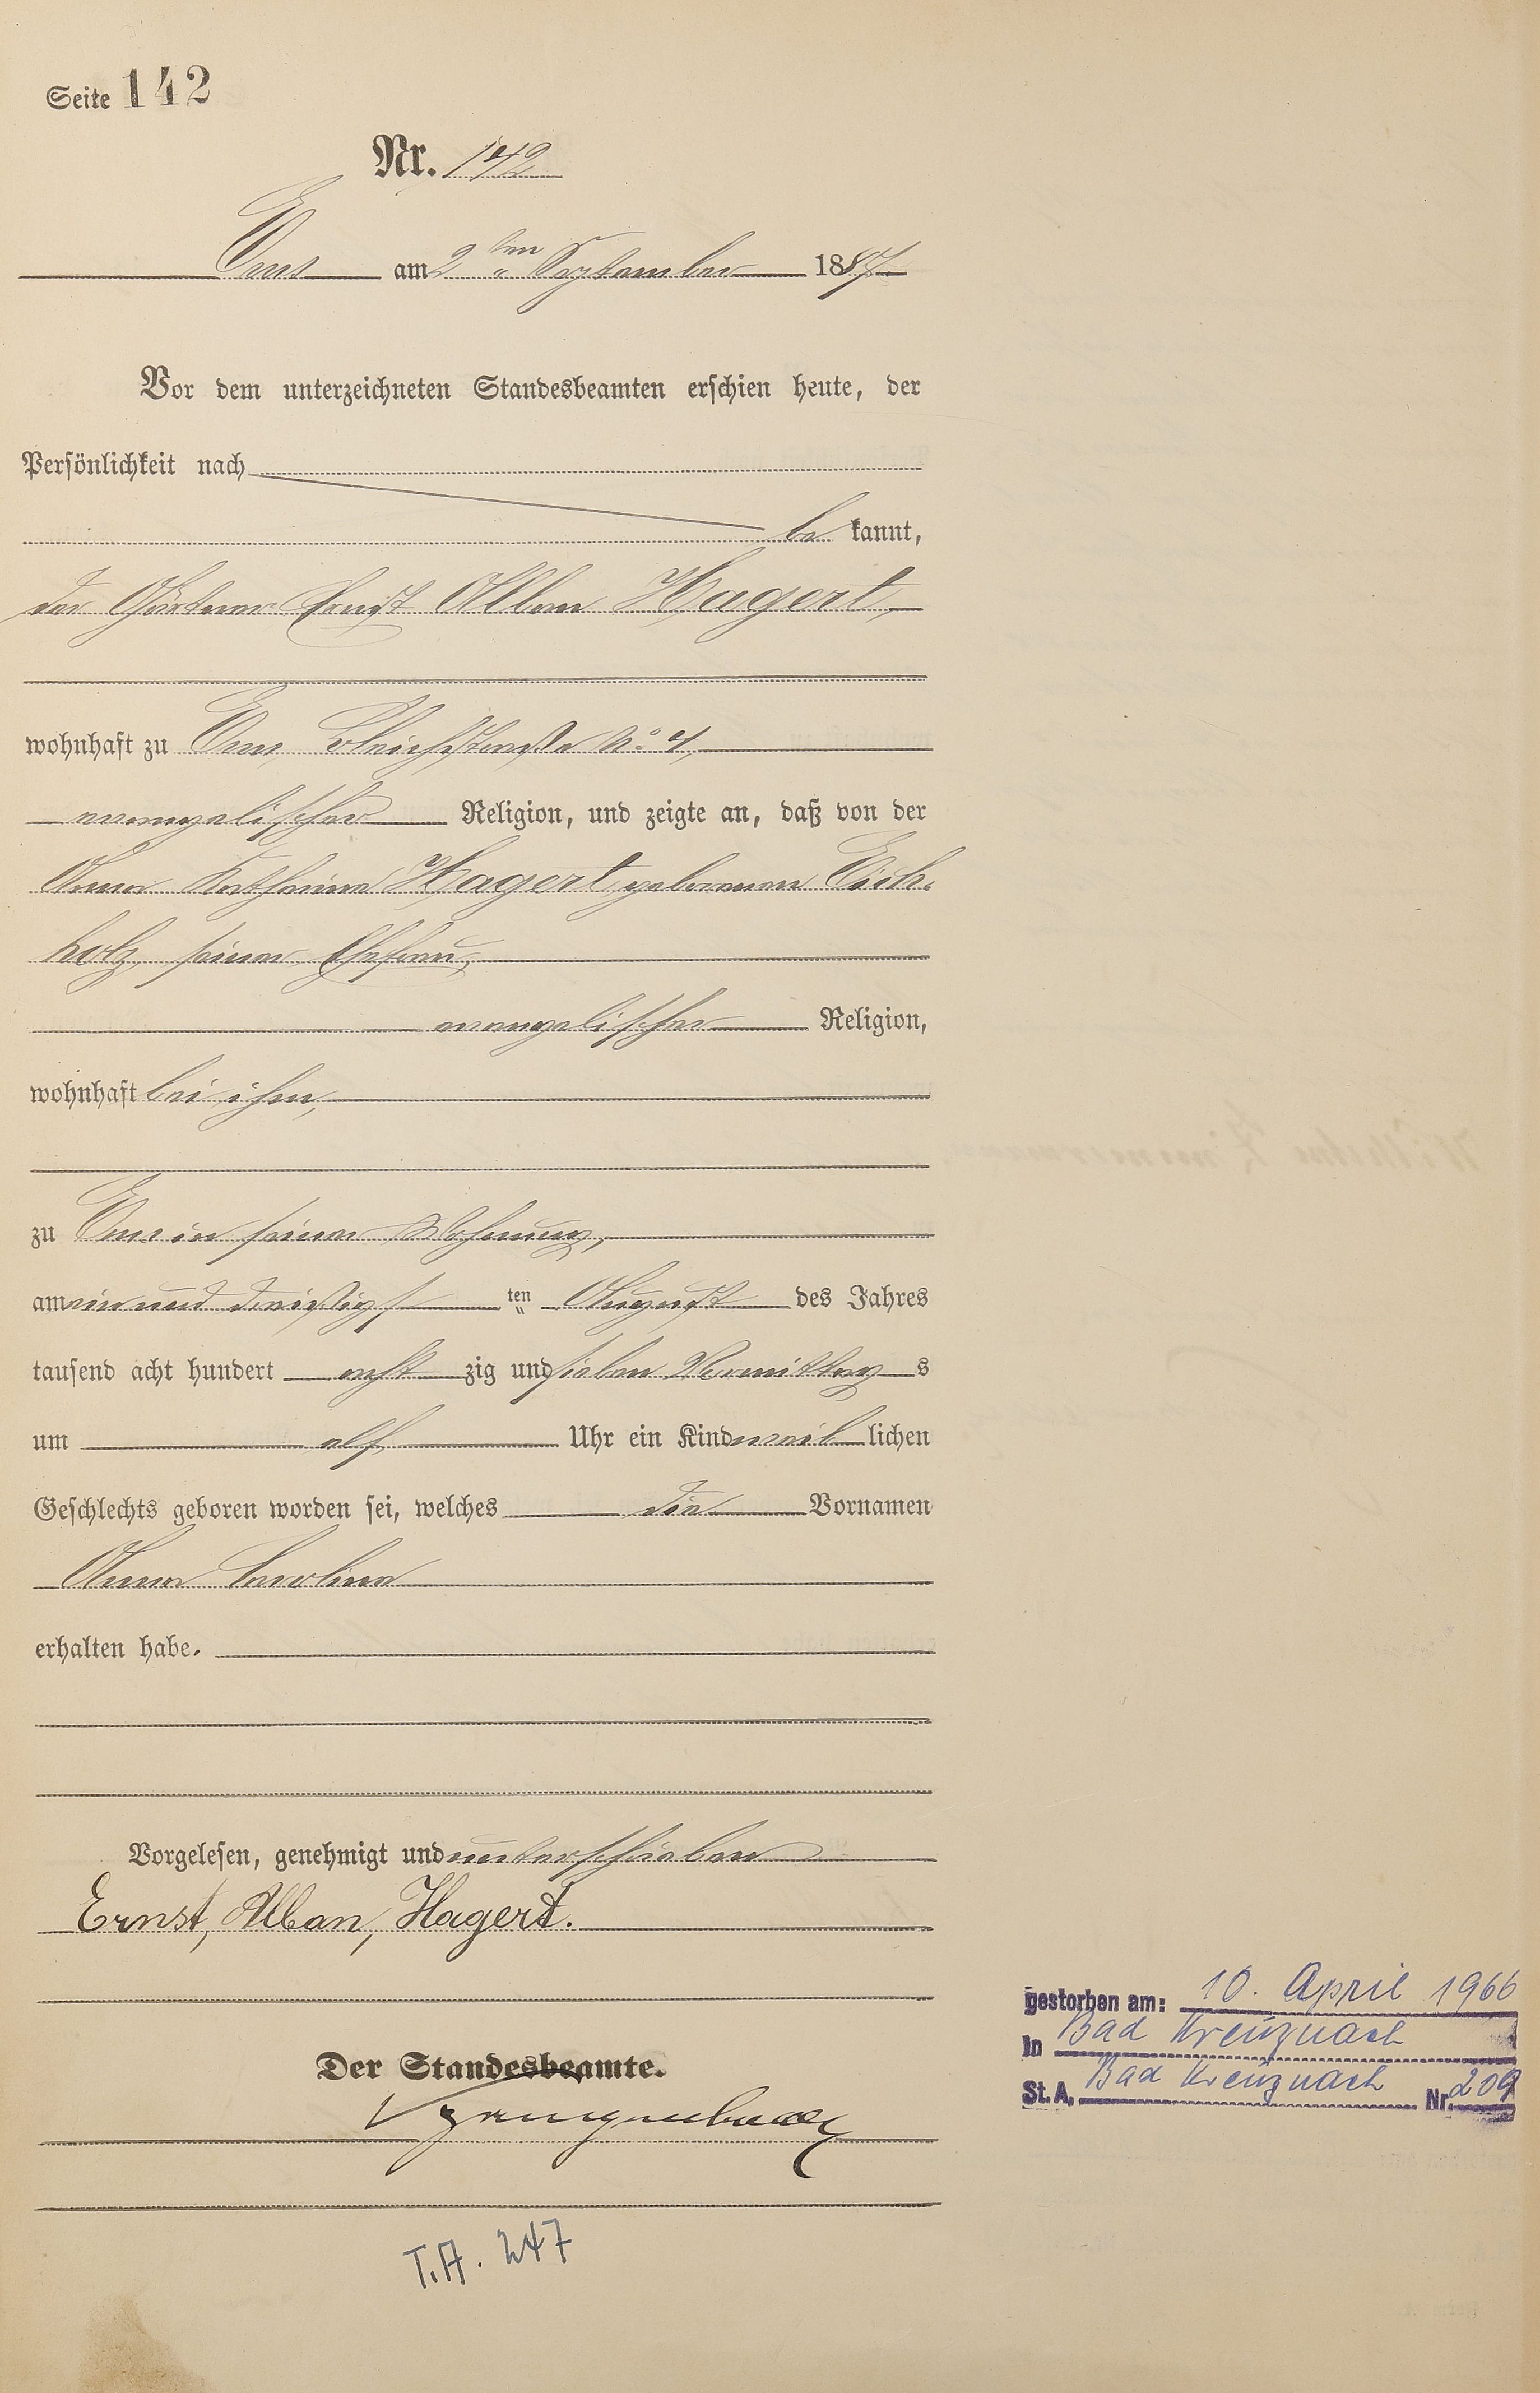 Seite 142
Nr. 142
Ems am 2ten September 1887
Vor dem unterzeichneten Standesbeamten erschien heute, der
Persönlichkeit nach
be kannt,
der Gärtner Ernst Alban Hagert,
wohnhaft zu Ems, Bleichstraße No 4,
evangelischer Religion, und zeigte an, daß von der
Anna Katharina Hagert geborenen Eich-
holz, seiner Ehefrau,
evangelischer Religion,
wohnhaft bei ihm,
zu Ems in seiner Wohnung,
am ein und dreißigst ten August des Jahres
tausend acht hundert acht zig und sieben Vormittag s
um elf Uhr ein Kind weib lichen
Geschlechts geboren worden sei, welches die Vornamen
Anna Carolina
erhalten habe.
Vorgelesen, genehmigt und unterschrieben
Ernst, Alban, Hagert.
Der Standesbeamte.
T.A. 247
gestorben am: 10. April 1966
in Bad Kreuznach
St. A. Bad Kreuznach Nr. 209